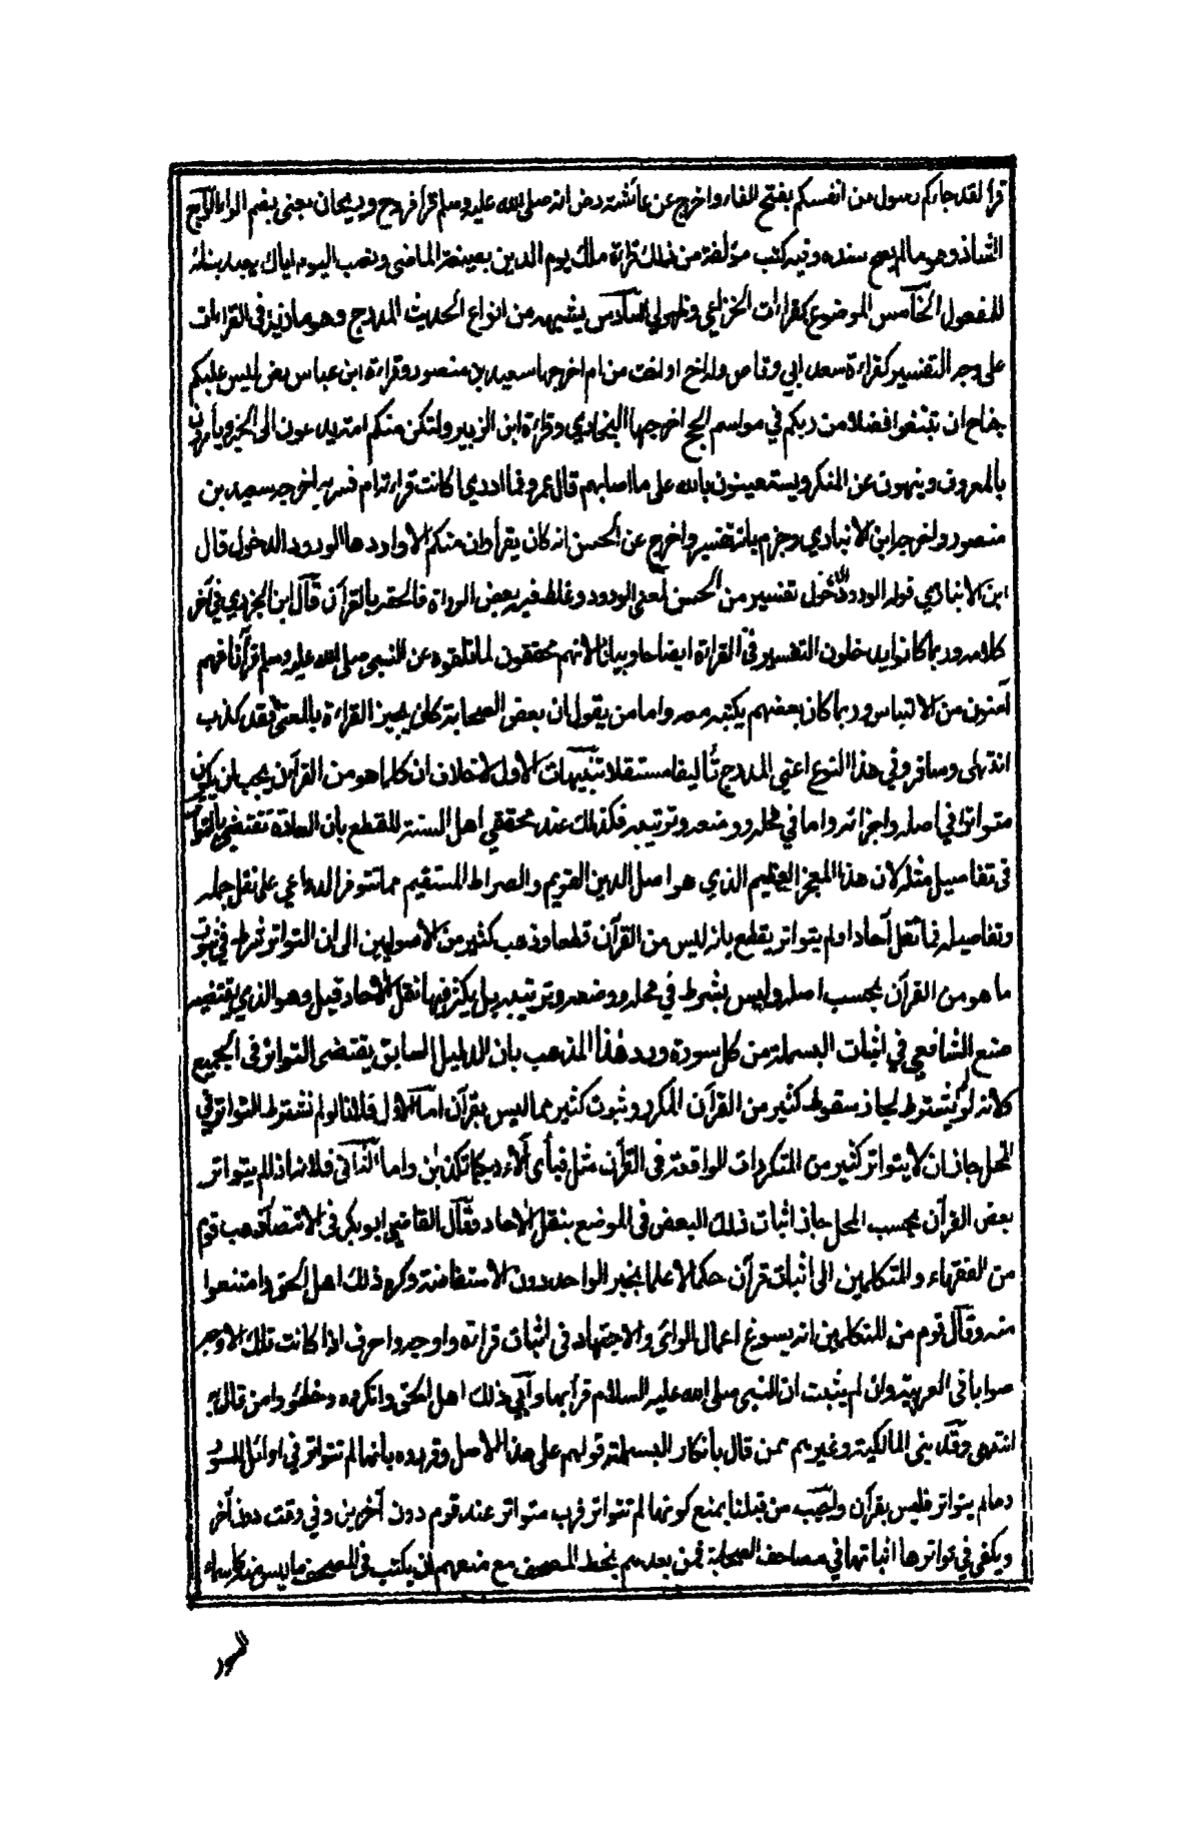 قرأ لقد جاءكم رسول من انفسكم بفتح الفاء واخرج عن عائشة رض انه صلى الله عليه وسلم قرأ فروح وريحان يعنى بضم الراء الرابع
الشاذ وهو مالم يصح سنده وفيه كتب مؤلفة من ذلك قراءة ملك يوم الدين بصيغة الماضى ونصب اليوم اياك يعبد ببنائه
للمفعول الخامس الموضوع كقراءات الخزاعي وظهر لي السادس يشبهه من انواع الحديث المدرج وهو مازيد فى القراءات
على وجه التفسير كقراءة سعد ابي وقاص وله اخ او اخت من ام اخرجها سعيد بن منصور وقراءة ابن عباس رض ليس عليكم
جناح ان تبتغوا فضلا من ربكم في مواسم الحج اخرجها البخاري وقراءة ابن الزبير ولتكن منكم امة يدعون الى الخير ويأمرون
بالمعروف وينهون عن المنكر ويستعينون بالله على ما اصابهم قال عمرو فما ادري اكانت قراءته ام فسر اخرجه سعيد بن
منصور واخرجه ابن الانباري وجزم بانه تفسير واخرج عن الحسن انه كان يقرأ وان منكم الا واردها الورود الدخول قال
ابن الانباري قوله الورود الدخول تفسير من الحسن لمعنى الورود وغلط فيه بعض الرواة فالحقه بالقرآن قال ابن الجزري في آخر
كلامه وربما كانوا يدخلون التفسير في القراءة ايضاحا وبيانا لانهم محققون لما تلقوه عن النبي صلى الله عليه وسلم قرآنا فهم
آمنون من الالتباس وربما كان بعضهم يكتبه معه واما من يقول ان بعض الصحابة كان يجيز القراءة بالمعنى فقد كذب
انتهى وسافر في هذا النوع اعني المدرج تأليفا مستقلا تنبيهات الاول لاخلاف ان كل ما هو من القرآن يجب ان يكون
متواترا في اصله واجزائه واما في محله ووضعه وترتيبه فكذلك عند محققي اهل السنة للقطع بأن العادة تقتضي بالتواتر
فى تفاصيل مثله لان هذا المعجز العظيم الذي هو اصل الدين القويم والصراط المستقيم مما تتوفر الدواعي على نقل جمله
وتفاصيله فما نقل آحادا ولم يتواتر يقطع بانه ليس من القرآن قطعا وذهب كثير من الأصوليين الى ان التواتر شرط في ثبوت
ما هو من القرآن بحسب اصله وليس بشرط في محله ووضعه وترتيبه بل يكثر فيها نقل الآحاد قيل وهو الذي يقتضيه
صنع الشافعي في اثبات البسملة من كل سورة ورد هذا المذهب بان الدليل السابق يقتضى التواتر فى الجميع
لانه لو لم يشترط لجاز سقوط كثير من القرآن المكرر وثبوت كثير مما ليس بقرآن اما الاول فلانا لو لم نشترط التواتر في
المحل جاز ان لا يتواتر كثير من المتكررات الواقعة فى القرآن مثل فبأى آلاء ربكما تكذبان واما الثانى فلانه اذا لم يتواتر
بعض القرآن بحسب المحل جاز اثبات ذلك البعض فى الموضع بنقل الآحاد وقال القاضي ابو بكر فى الانتصار ذهب قوم
من الفقهاء والمتكلمين الى اثبات قرآن حكما لا علما بخبر الواحد دون الاستفاضة وكره ذلك اهل الحق وامتنعوا
منه وقال قوم من المتكلمين انه يسوغ اعمال الرائ والاجتهاد فى اثبات قراءة واوجه واحرف اذا كانت تلك الاوجه
صوابا فى العربية وان لم يثبت ان النبى صلى الله عليه السلام قرأ بها وأبي ذلك اهل الحق وانكروه وخطؤا من قال به
انتهى وقد بنى المالكية وغيرهم ممن قال بأنكار البسملة قولهم على هذا الاصل وقرروه بانها لم تتواتر في اوائل السور
ومالم يتواتر فليس بقرآن واجيب من قبلنا بمنع كونها لم تتواتر فرب متواتر عند قوم دون آخرين وفي وقت دون آخر
ويكفى في تواترها اثباتها في مصاحف الصحابة فمن بعدهم بخط المصحف مع منعهم ان يكتب فى المصحف ما ليس منه كأسماء
السور